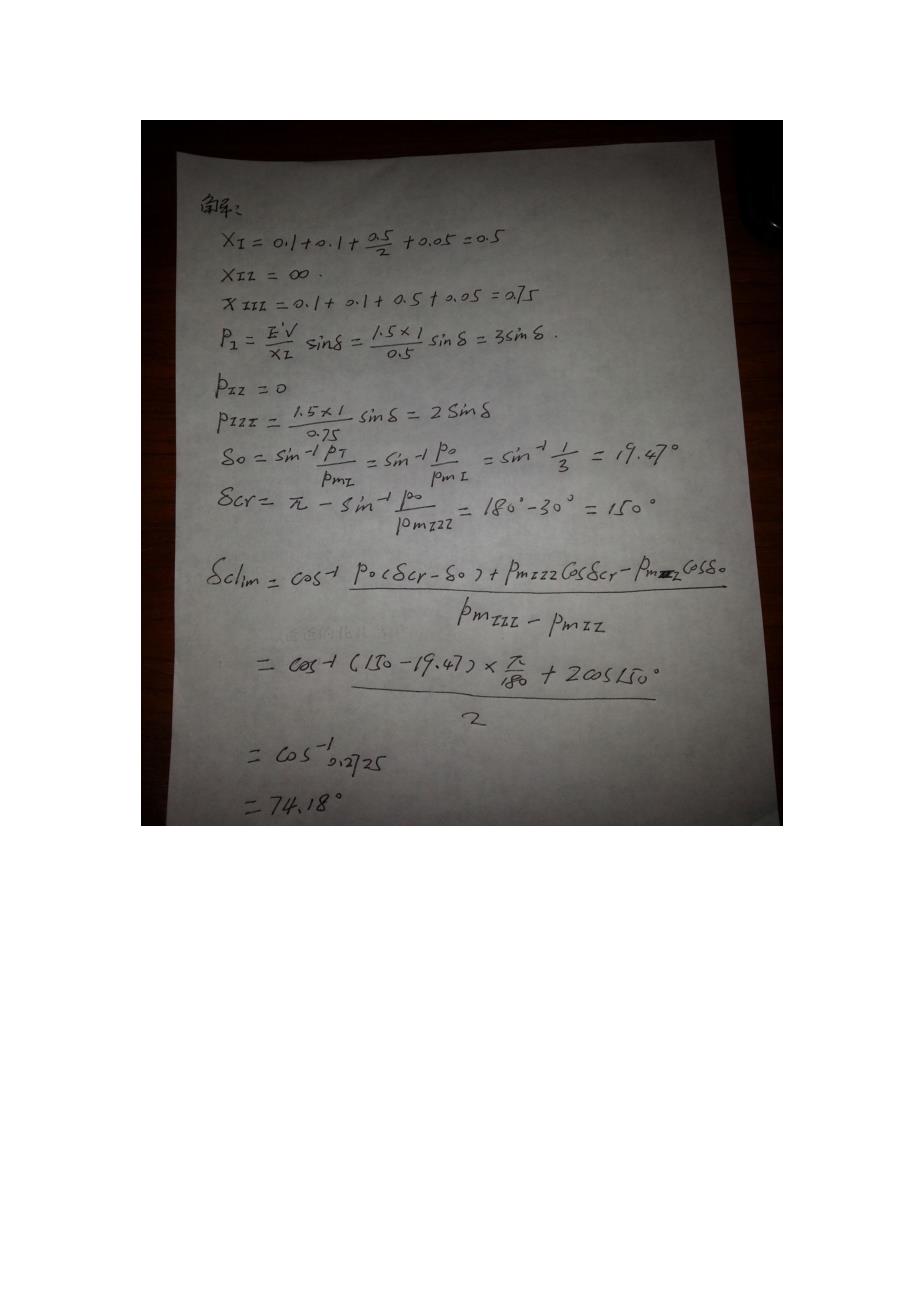 解：
X_I = 0.1+0.1+\frac{0.5}{2}+0.05=0.5
X_{II} = ∞.
X_{III} = 0.1+0.1+0.5+0.05=0.75
P_1 = \frac{E'V}{X_I} sinδ = \frac{1.5×1}{0.5} sinδ = 3sinδ.
P_{II} = 0
P_{III} = \frac{1.5×1}{0.75} sinδ = 2sinδ
δ_0 = sin^{-1}\frac{P_T}{P_{mI}} = sin^{-1}\frac{P_0}{P_{mI}} = sin^{-1}\frac{1}{3} = 19.47°
δ_{cr} = π - sin^{-1}\frac{P_0}{P_{mIII}} = 180°-30° = 150°
δ_{clim} = cos^{-1}\frac{P_0(δ_{cr}-δ_0)+P_{mIII}cosδ_{cr}-P_{mII}cosδ_0}{P_{mIII}-P_{mII}}
= cos^{-1}\frac{(150-19.47)×\frac{π}{180}+2cos150°}{2}
= cos^{-1}0.2725
= 74.18°